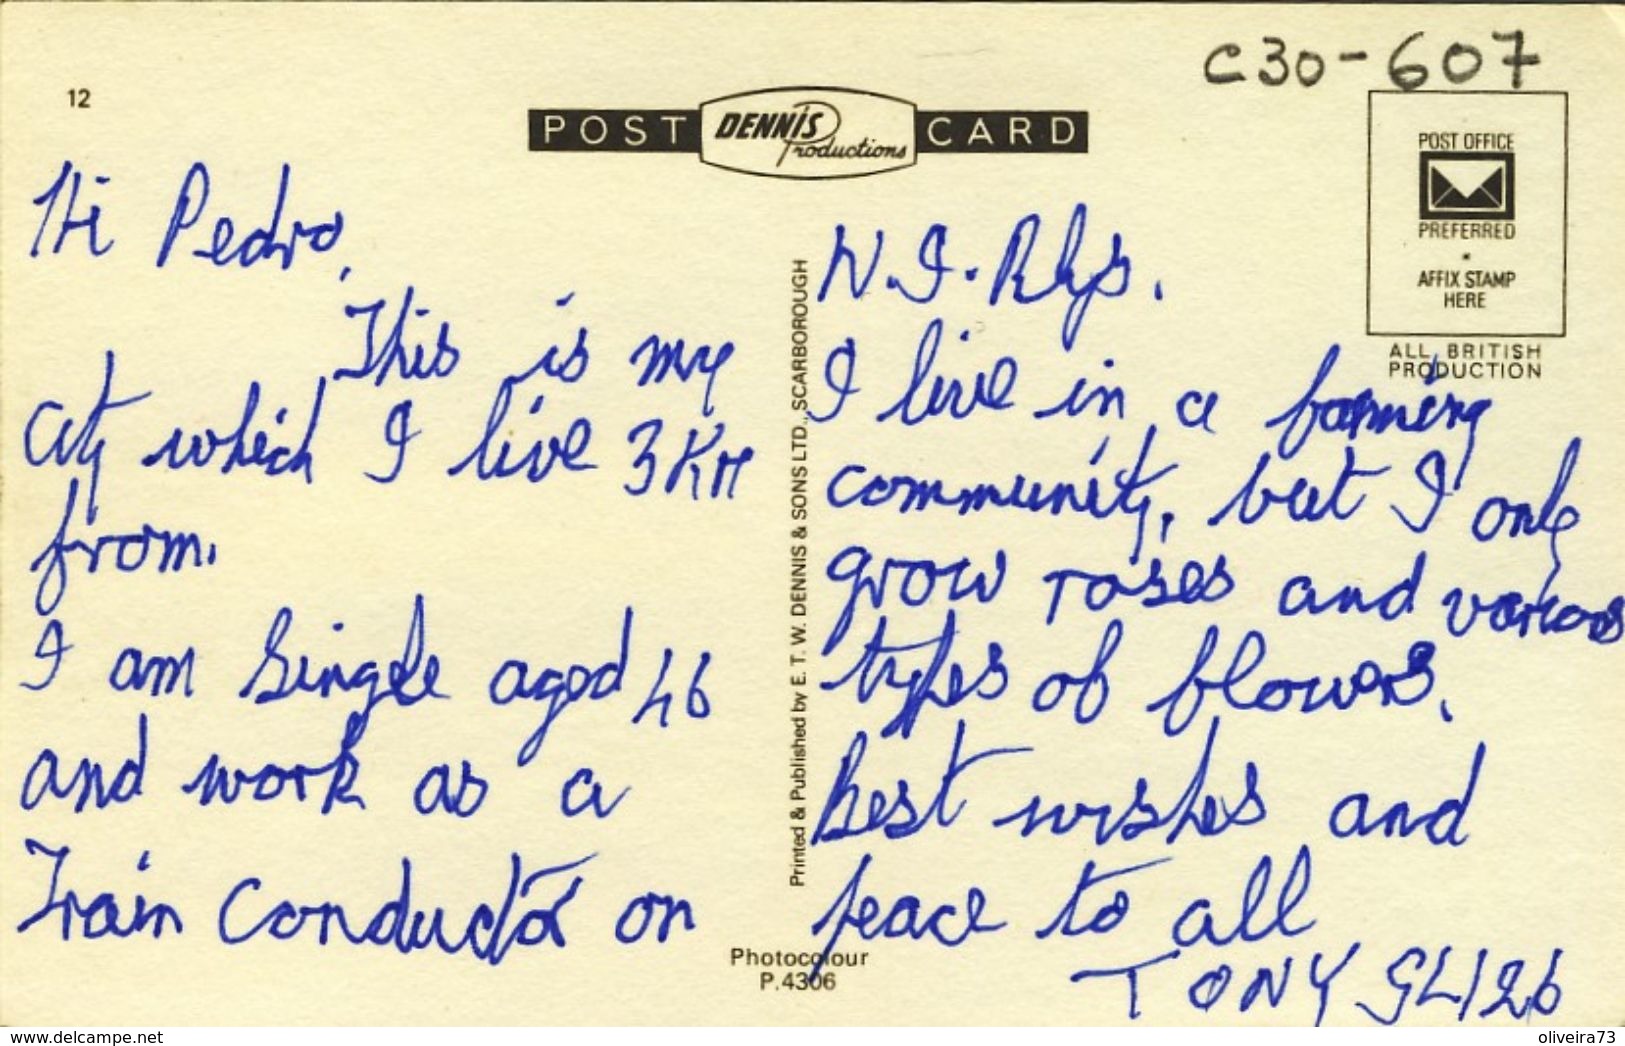 C30-607
12
POST DENNIS Productions CARD
POST OFFICE
PREFERRED
*
AFFIX STAMP
HERE
ALL BRITISH
PRODUCTION
Hi Pedro,
This is my
City which I live 3KM
from.
I am Single aged 46
and work as a
Train Conductor on
Printed & Published by E. T. W. DENNIS & SONS LTD., SCARBOROUGH
N.I. Rlys.
I live in a farming
community, but I only
grow roses and various
types of flowers.
Best wishes and
peace to all
TONY SL126
Photocolour
P.4306
www.delcampe.net
oliveira73